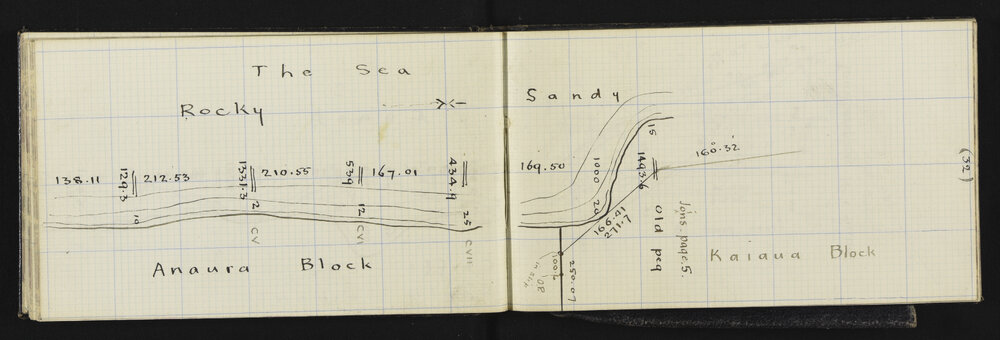 The Sea
Rocky
138.11
129.3
212.53
1331.3
210.55
539
167.01
434.9
10
2
12
25
CV
CVI
CVII
Anaura Block
Sandy
169.50
1000
20
15
1493.6
160.32
166.41
271.7
old peg
joins page 5.
Kaiaua Block
250.07
1006
(32)